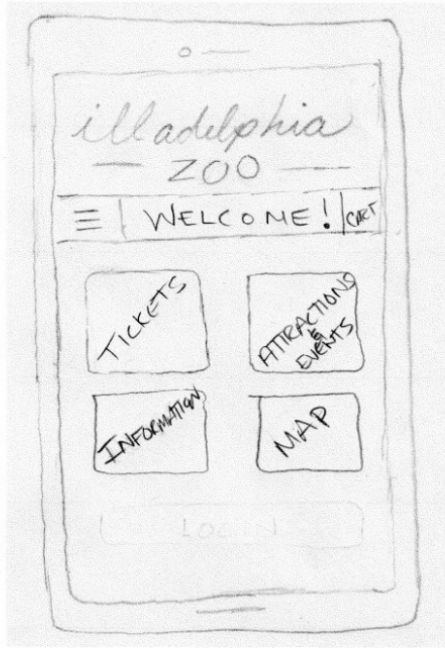 illadelphia
ZOO
WELCOME!
CART
TICKETS
ATTRACTIONS
&
EVENTS
INFORMATION
MAP
LOGIN